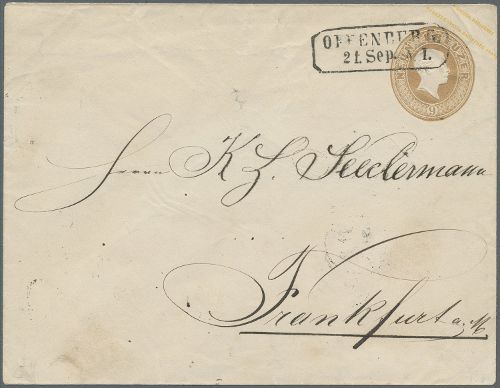 OFFENBURG
21. Sep. 1.
NEUN KREUZER
9
Herrn K H. Seedermann
Frankfurt a/M